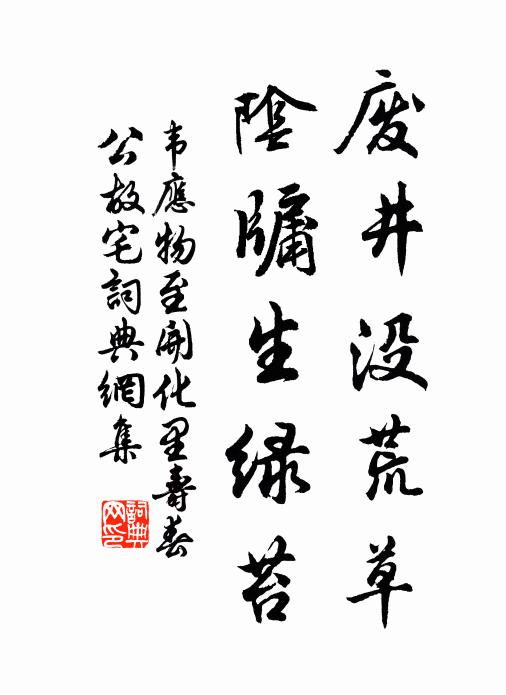 废井没荒草
陰牖生绿苔
韦應物至開化里壽春
公故宅詞典網集
詞典网印